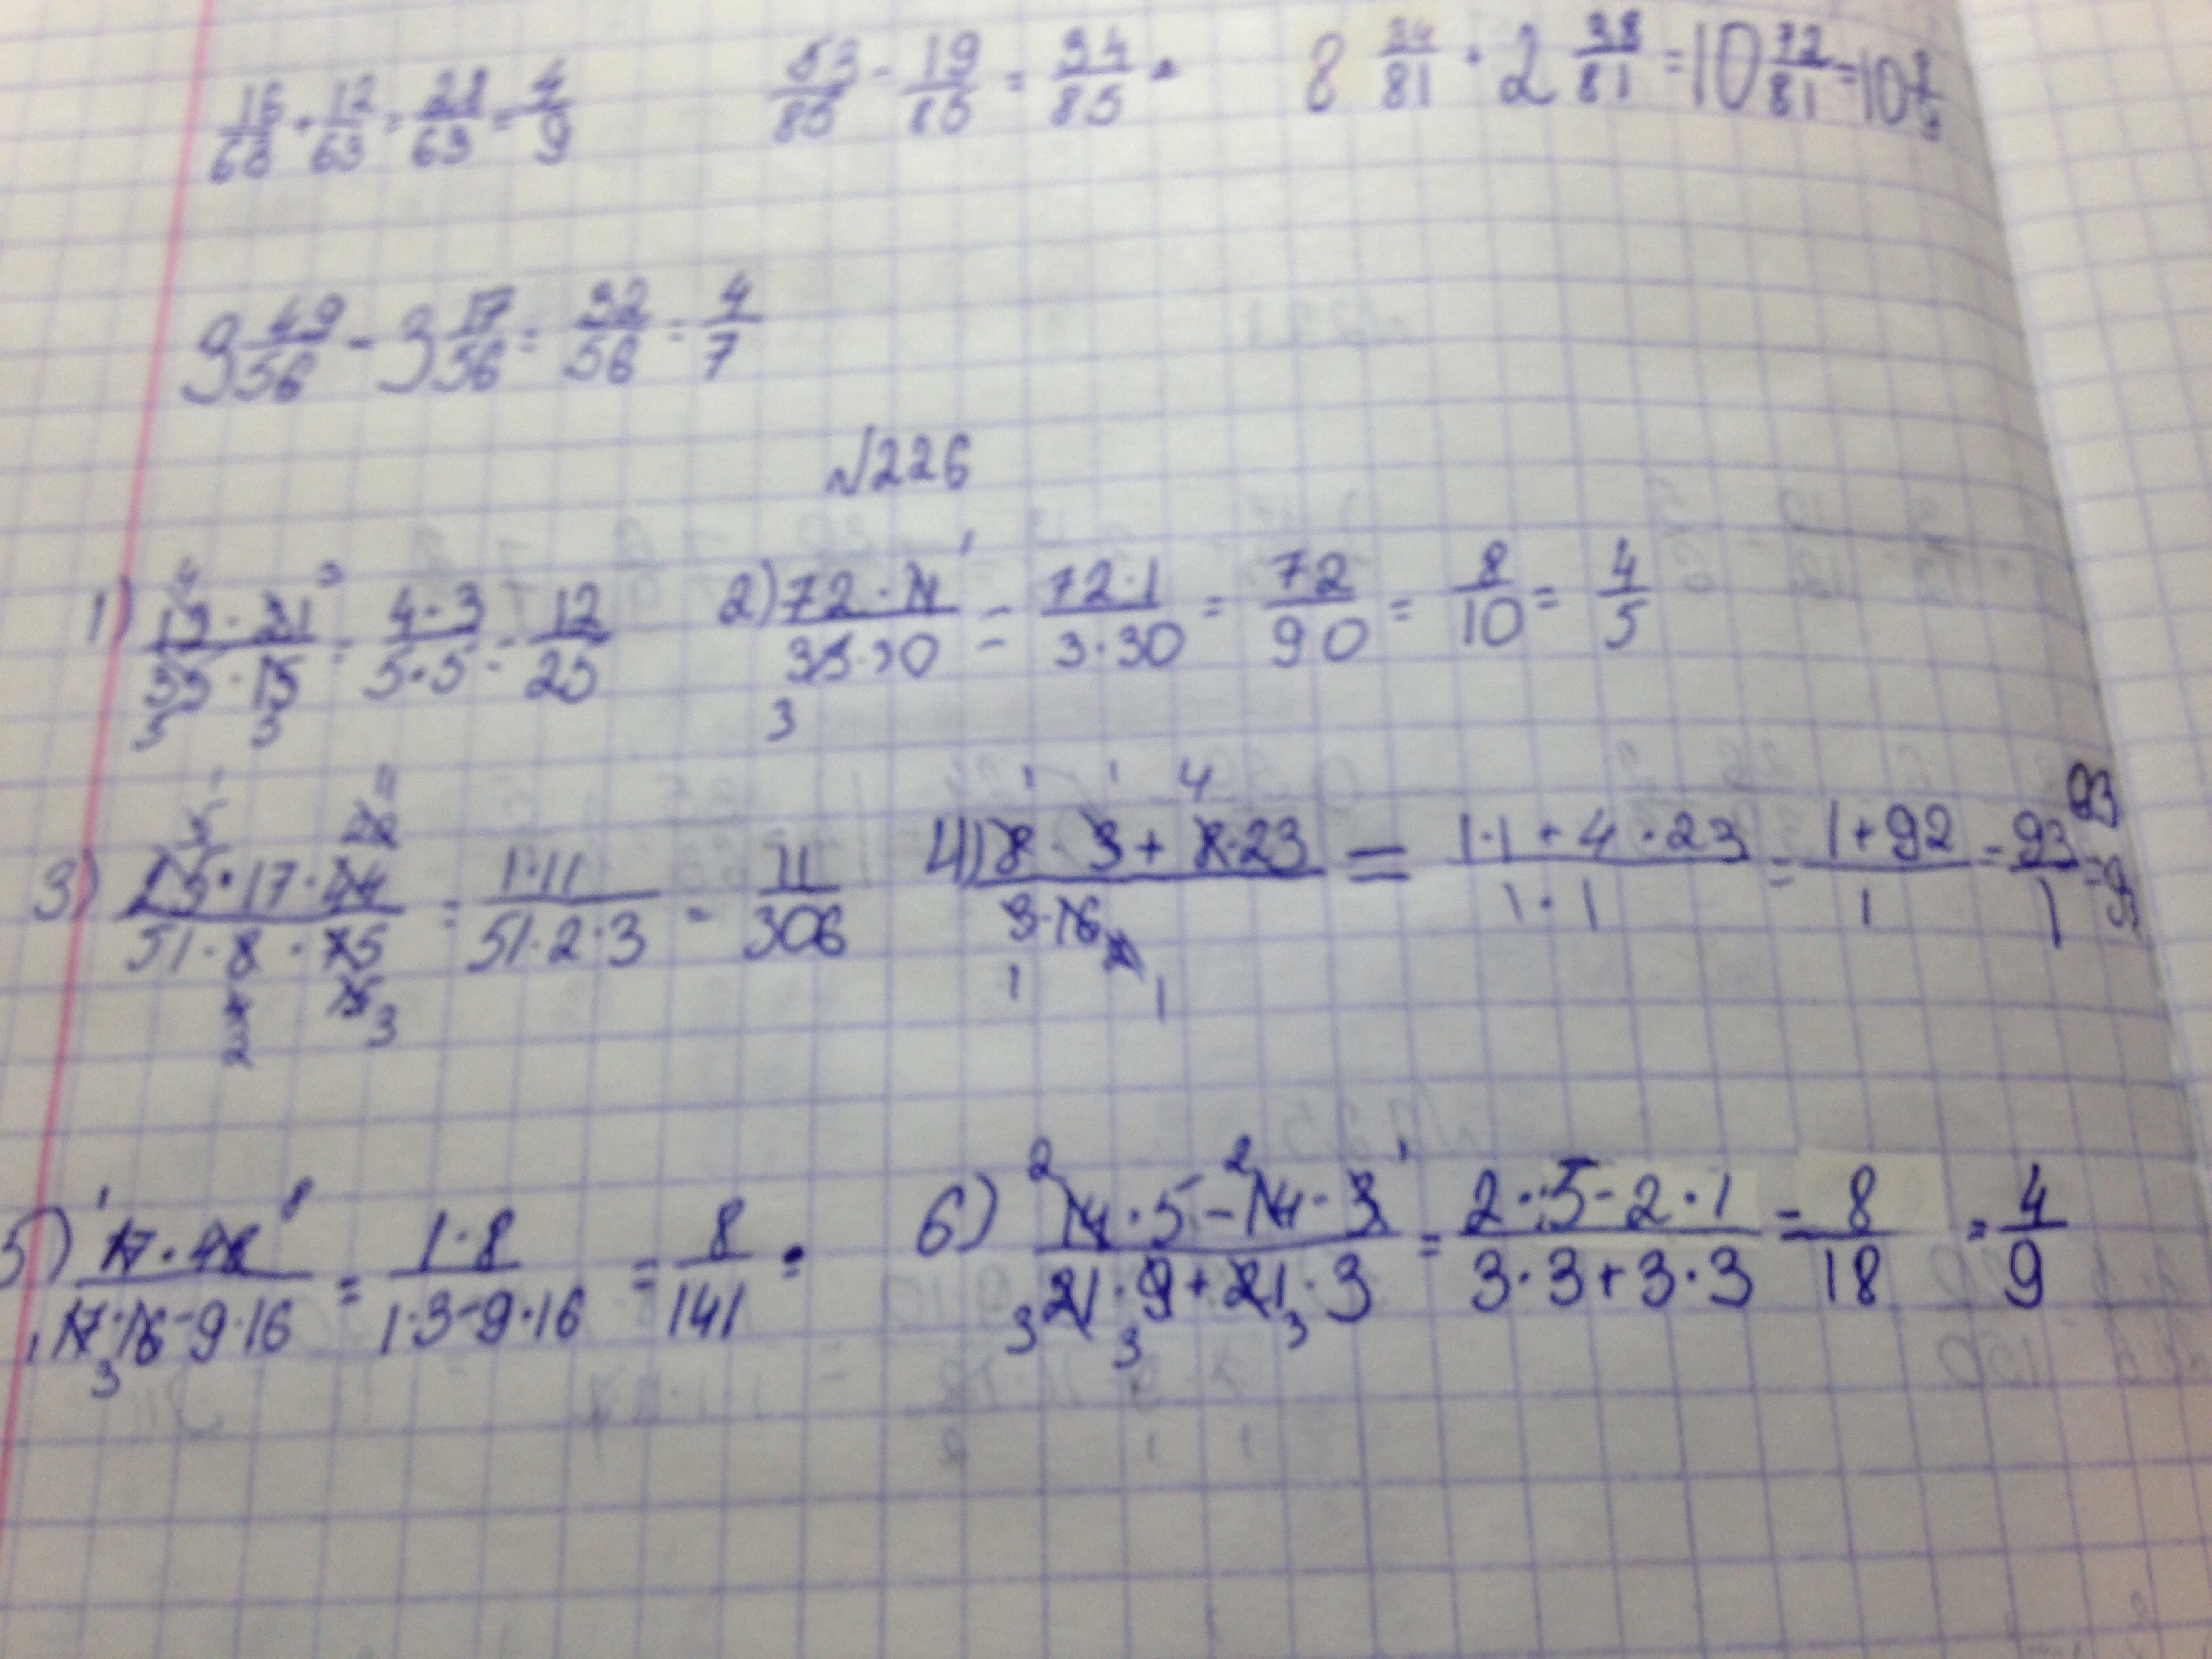 16/63 + 12/63 = 28/63 = 4/9   53/85 - 19/85 = 34/85   8 34/81 + 2 38/81 = 10 72/81 = 10 8/9
9 49/56 - 3 17/56 = 32/56 = 4/7
№226
1) = 4·3/5·5 = 12/25   2) 72·11/33·30 = 72·1/3·30 = 72/90 = 8/10 = 4/5
3) 25·17·44/51·8·75 = 1·11/51·2·3 = 11/306   4) 8·3+8·23/3·16 = 1·1+4·23/1·1 = 1+92/1 = 93/1 = 93
5) 17·48/17·16-9·16 = 1·8/1·3-9·16 = 8/141   6) 14·5-14·3/21·9+21·3 = 2·5-2·1/3·3+3·3 = 8/18 = 4/9